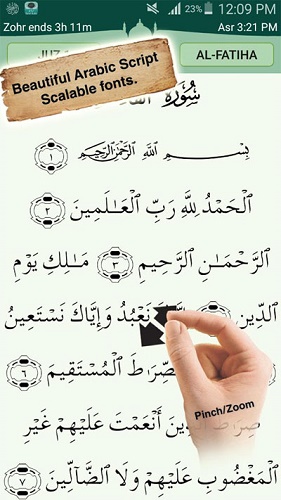 23% 12:09 PM
Zohr ends 3h 11m Asr 3:21 PM
JUZ AL-FATIHA
Beautiful Arabic Script
Scalable fonts.
سُورَةُ
بِسْمِ ٱللَّهِ ٱلرَّحْمَٰنِ ٱلرَّحِيمِ ١
ٱلْحَمْدُ لِلَّهِ رَبِّ ٱلْعَـٰلَمِينَ ٢
ٱلرَّحْمَـٰنِ ٱلرَّحِيمِ ٣ مَـٰلِكِ يَوْمِ
ٱلدِّينِ نَعْبُدُ وَإِيَّاكَ نَسْتَعِينُ
ٱلْمُسْتَقِيمَ ٦
صِرَٰطَ ٱلَّذِينَ أَنْعَمْتَ عَلَيْهِمْ غَيْرِ
ٱلْمَغْضُوبِ عَلَيْهِمْ وَلَا ٱلضَّآلِّينَ ٧
Pinch/Zoom